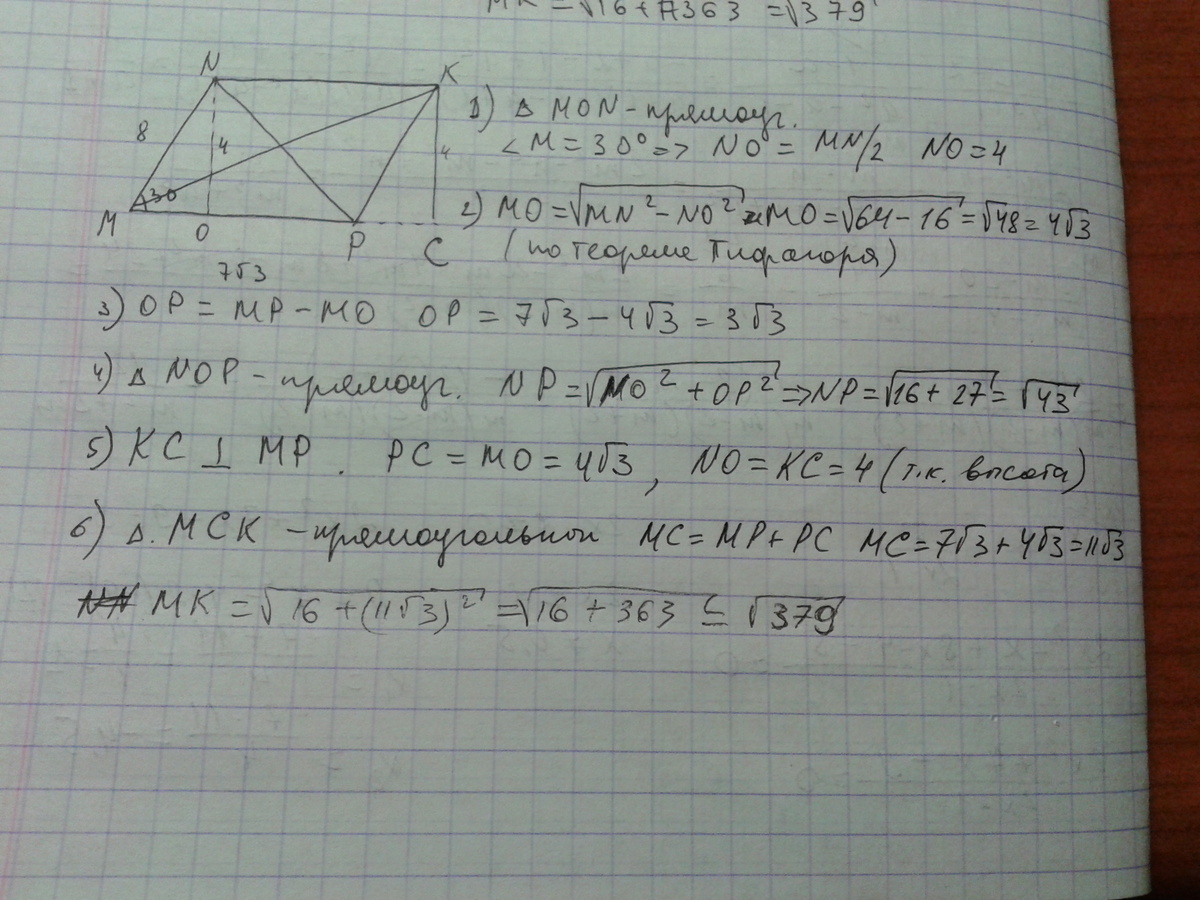 MK = √16 + 363 = √379
N
K
8
4
4
30
M
O
P
C
7√3
1) Δ MON - прямоуг.
< M = 30° => NO = MN/2 NO = 4
2) MO = √MN² - NO² MO = √64 - 16 = √48 = 4√3
(по теореме Пифагора)
3) OP = MP - MO OP = 7√3 - 4√3 = 3√3
4) Δ NOP - прямоуг. NP = √NO² + OP² => NP = √16 + 27 = √43
5) KC ⊥ MP . PC = MO = 4√3 , NO = KC = 4 (т.к. высота)
6) Δ. MCK - прямоугольной MC = MP + PC MC = 7√3 + 4√3 = 11√3
MK = √16 + (11√3)² = √16 + 363 = √379